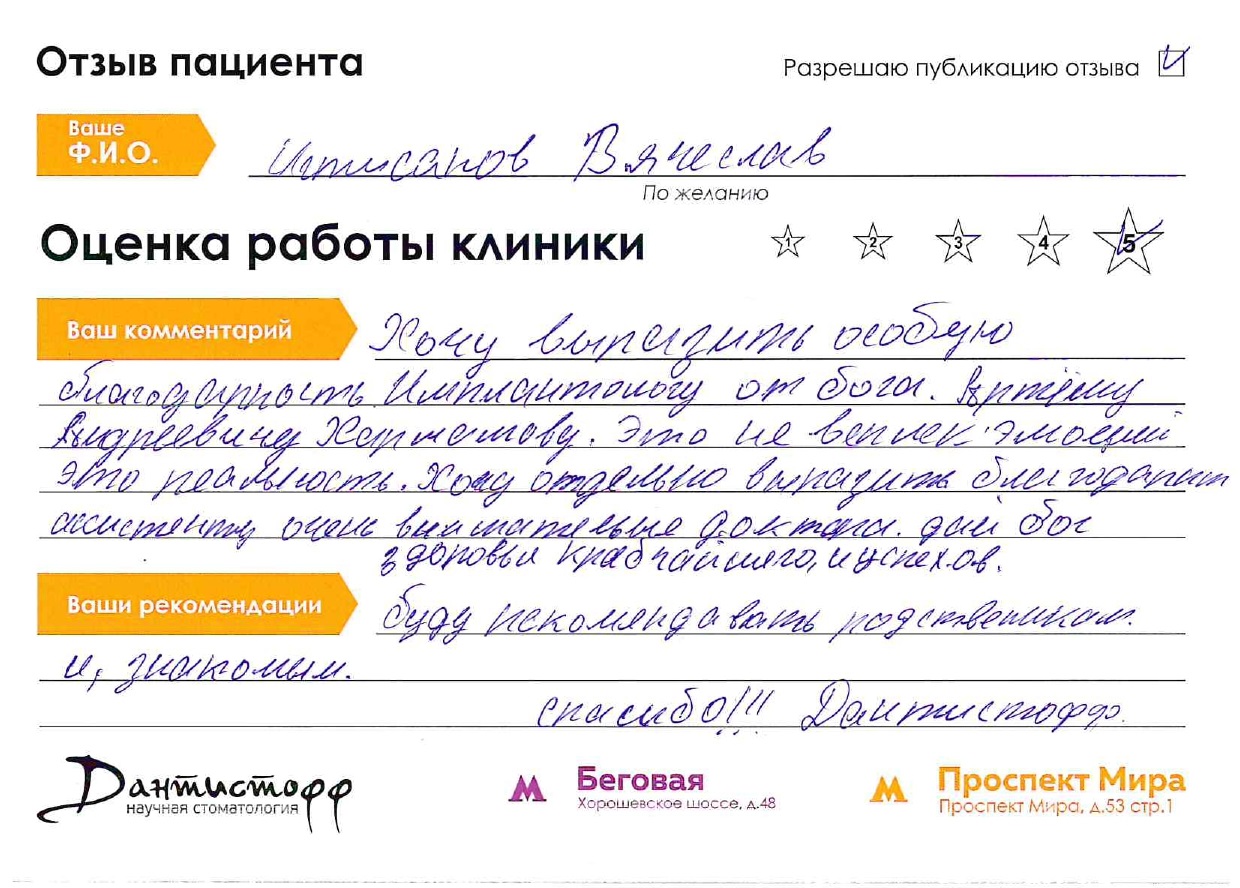 Отзыв пациента
Разрешаю публикацию отзыва
Ваше
Ф.И.О.
Вячеслав
По желанию
Оценка работы клиники
1 2 3 4 5
Ваш комментарий
Хочу выразить особую
благодарность Имплантологу от бога. Артёму
Андреевичу. Это не всплек эмоций
это реальность. Хочу отдельно выразить
ассистенту очень доктора. дай бог
здоровья крабчайшего, и успехов.
Ваши рекомендации
буду рекомендавать родственикам
и, знакомым.
спасибо!!! Дантистофф.
Дантистофф
научная стоматология
Беговая
Хорошевское шоссе, д.48
Проспект Мира
Проспект Мира, д.53 стр.1